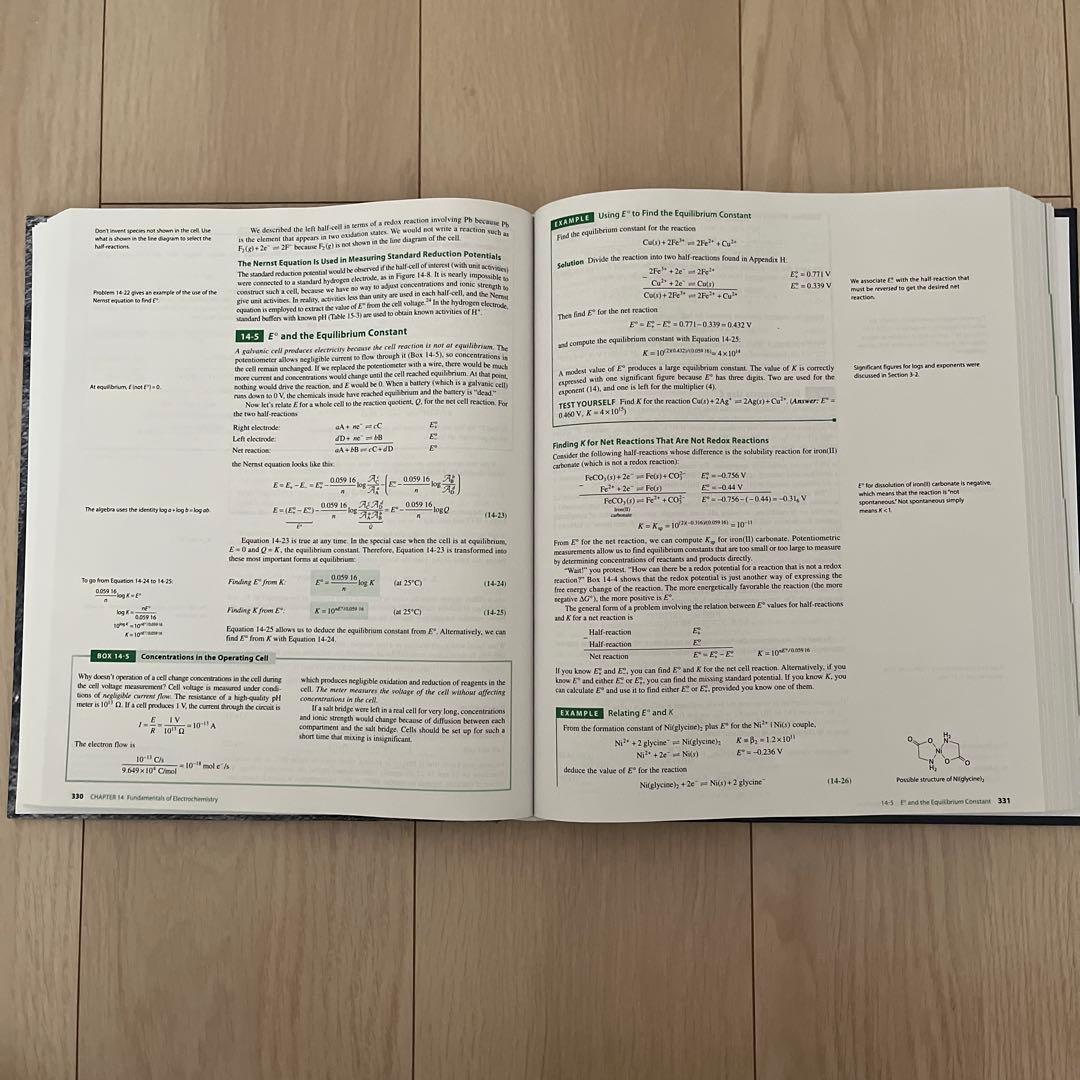 Don't invent species not shown in the cell. Use
what is shown in the line diagram to select the
half-reactions.
We described the left half-cell in terms of a redox reaction involving Pb because Pb
is the element that appears in two oxidation states. We would not write a reaction such as
F₂(g) + 2e⁻ ⇌ 2F⁻ because F₂(g) is not shown in the line diagram of the cell.
The Nernst Equation Is Used in Measuring Standard Reduction Potentials
Problem 14-22 gives an example of the use of the
Nernst equation to find E°.
The standard reduction potential would be observed if the half-cell of interest (with unit activities)
were connected to a standard hydrogen electrode, as in Figure 14-8. It is nearly impossible to
construct such a cell, because we have no way to adjust concentrations and ionic strength to
give unit activities. In reality, activities less than unity are used in each half-cell, and the Nernst
equation is employed to extract the value of E° from the cell voltage.²⁴ In the hydrogen electrode,
standard buffers with known pH (Table 15-3) are used to obtain known activities of H⁺.
14-5 E° and the Equilibrium Constant
At equilibrium, E (not E°) = 0.
A galvanic cell produces electricity because the cell reaction is not at equilibrium. The
potentiometer allows negligible current to flow through it (Box 14-5), so concentrations in
the cell remain unchanged. If we replaced the potentiometer with a wire, there would be much
more current and concentrations would change until the cell reached equilibrium. At that point,
nothing would drive the reaction, and E would be 0. When a battery (which is a galvanic cell)
runs down to 0 V, the chemicals inside have reached equilibrium and the battery is "dead."
Now let's relate E for a whole cell to the reaction quotient, Q, for the net cell reaction. For
the two half-reactions
Right electrode: aA + ne⁻ ⇌ cC E°₊
Left electrode: dD + ne⁻ ⇌ bB E°₋
Net reaction: aA + bB ⇌ cC + dD E°
the Nernst equation looks like this:
E = E₊ − E₋ = E°₊ − 0.059 16/n log 𝒜ᶜ_C/𝒜ᵃ_A − (E°₋ − 0.059 16/n log 𝒜ᵇ_B/𝒜ᵈ_D)
The algebra uses the identity log a + log b = log ab.
E = (E°₊ − E°₋) − 0.059 16/n log 𝒜ᶜ_C𝒜ᵈ_D/𝒜ᵃ_A𝒜ᵇ_B = E° − 0.059 16/n log Q (14-23)
E° Q
Equation 14-23 is true at any time. In the special case when the cell is at equilibrium,
E = 0 and Q = K, the equilibrium constant. Therefore, Equation 14-23 is transformed into
these most important forms at equilibrium:
To go from Equation 14-24 to 14-25:
0.059 16/n log K = E°
log K = nE°/0.059 16
10^(log K) = 10^(nE°/0.059 16)
K = 10^(nE°/0.059 16)
Finding E° from K: E° = 0.059 16/n log K (at 25°C) (14-24)
Finding K from E°: K = 10^(nE°/0.059 16) (at 25°C) (14-25)
Equation 14-25 allows us to deduce the equilibrium constant from E°. Alternatively, we can
find E° from K with Equation 14-24.
BOX 14-5 Concentrations in the Operating Cell
Why doesn't operation of a cell change concentrations in the cell during
the cell voltage measurement? Cell voltage is measured under condi-
tions of negligible current flow. The resistance of a high-quality pH
meter is 10¹³ Ω. If a cell produces 1 V, the current through the circuit is
I = E/R = 1 V/10¹³ Ω = 10⁻¹³ A
The electron flow is
10⁻¹³ C/s / 9.649×10⁴ C/mol = 10⁻¹⁸ mol e⁻/s
which produces negligible oxidation and reduction of reagents in the
cell. The meter measures the voltage of the cell without affecting
concentrations in the cell.
If a salt bridge were left in a real cell for very long, concentrations
and ionic strength would change because of diffusion between each
compartment and the salt bridge. Cells should be set up for such a
short time that mixing is insignificant.
330 CHAPTER 14 Fundamentals of Electrochemistry
EXAMPLE Using E° to Find the Equilibrium Constant
Find the equilibrium constant for the reaction
Cu(s) + 2Fe³⁺ ⇌ 2Fe²⁺ + Cu²⁺
Solution Divide the reaction into two half-reactions found in Appendix H:
2Fe³⁺ + 2e⁻ ⇌ 2Fe²⁺ E°₊ = 0.771 V
− Cu²⁺ + 2e⁻ ⇌ Cu(s) E°₋ = 0.339 V
Cu(s) + 2Fe³⁺ ⇌ 2Fe²⁺ + Cu²⁺
We associate E°₋ with the half-reaction that
must be reversed to get the desired net
reaction.
Then find E° for the net reaction
E° = E°₊ − E°₋ = 0.771 − 0.339 = 0.432 V
and compute the equilibrium constant with Equation 14-25:
K = 10^((2)(0.432)/(0.059 16)) = 4×10¹⁴
A modest value of E° produces a large equilibrium constant. The value of K is correctly
expressed with one significant figure because E° has three digits. Two are used for the
exponent (14), and one is left for the multiplier (4).
Significant figures for logs and exponents were
discussed in Section 3-2.
TEST YOURSELF Find K for the reaction Cu(s) + 2Ag⁺ ⇌ 2Ag(s) + Cu²⁺. (Answer: E° =
0.460 V, K = 4×10¹⁵)
Finding K for Net Reactions That Are Not Redox Reactions
Consider the following half-reactions whose difference is the solubility reaction for iron(II)
carbonate (which is not a redox reaction):
FeCO₃(s) + 2e⁻ ⇌ Fe(s) + CO₃²⁻ E°₊ = −0.756 V
− Fe²⁺ + 2e⁻ ⇌ Fe(s) E°₋ = −0.44 V
FeCO₃(s) ⇌ Fe²⁺ + CO₃²⁻ E° = −0.756 − (−0.44) = −0.31₆ V
Iron(II)
carbonate
E° for dissolution of iron(II) carbonate is negative,
which means that the reaction is "not
spontaneous." Not spontaneous simply
means K < 1.
K = Kₛₚ = 10^((2)(−0.316)/(0.059 16)) = 10⁻¹¹
From E° for the net reaction, we can compute Kₛₚ for iron(II) carbonate. Potentiometric
measurements allow us to find equilibrium constants that are too small or too large to measure
by determining concentrations of reactants and products directly.
"Wait!" you protest. "How can there be a redox potential for a reaction that is not a redox
reaction?" Box 14-4 shows that the redox potential is just another way of expressing the
free energy change of the reaction. The more energetically favorable the reaction (the more
negative ΔG°), the more positive is E°.
The general form of a problem involving the relation between E° values for half-reactions
and K for a net reaction is
Half-reaction E°₊
− Half-reaction E°₋
Net reaction E° = E°₊ − E°₋ K = 10^(nE°/0.059 16)
If you know E°₊ and E°₋, you can find E° and K for the net cell reaction. Alternatively, if you
know E° and either E°₊ or E°₋, you can find the missing standard potential. If you know K, you
can calculate E° and use it to find either E°₊ or E°₋, provided you know one of them.
EXAMPLE Relating E° and K
From the formation constant of Ni(glycine)₂ plus E° for the Ni²⁺ | Ni(s) couple,
Ni²⁺ + 2 glycine⁻ ⇌ Ni(glycine)₂ K ≡ β₂ = 1.2×10¹¹
Ni²⁺ + 2e⁻ ⇌ Ni(s) E° = −0.236 V
deduce the value of E° for the reaction
Ni(glycine)₂ + 2e⁻ ⇌ Ni(s) + 2 glycine⁻ (14-26)
O O H₂ N Ni N H₂ O O
Possible structure of Ni(glycine)₂
14-5 E° and the Equilibrium Constant 331